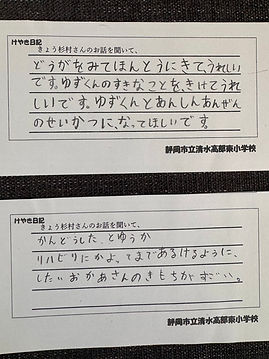 けやき日記
きょう杉村さんのお話を聞いて、
どうがをみてほんとうにきて、うれしい
です。ゆずくんのすきなことを、きけてうれ
しいです。ゆずくんとあんしんあんぜん
のせいかつに、なってほしいです。
静岡市立清水高部東小学校
けやき日記
きょう杉村さんのお話を聞いて、
かんどうした、とゆうか
リハビリにかよってまであるけるように、
したいおかあさんのきもちがすごい。
静岡市立清水高部東小学校